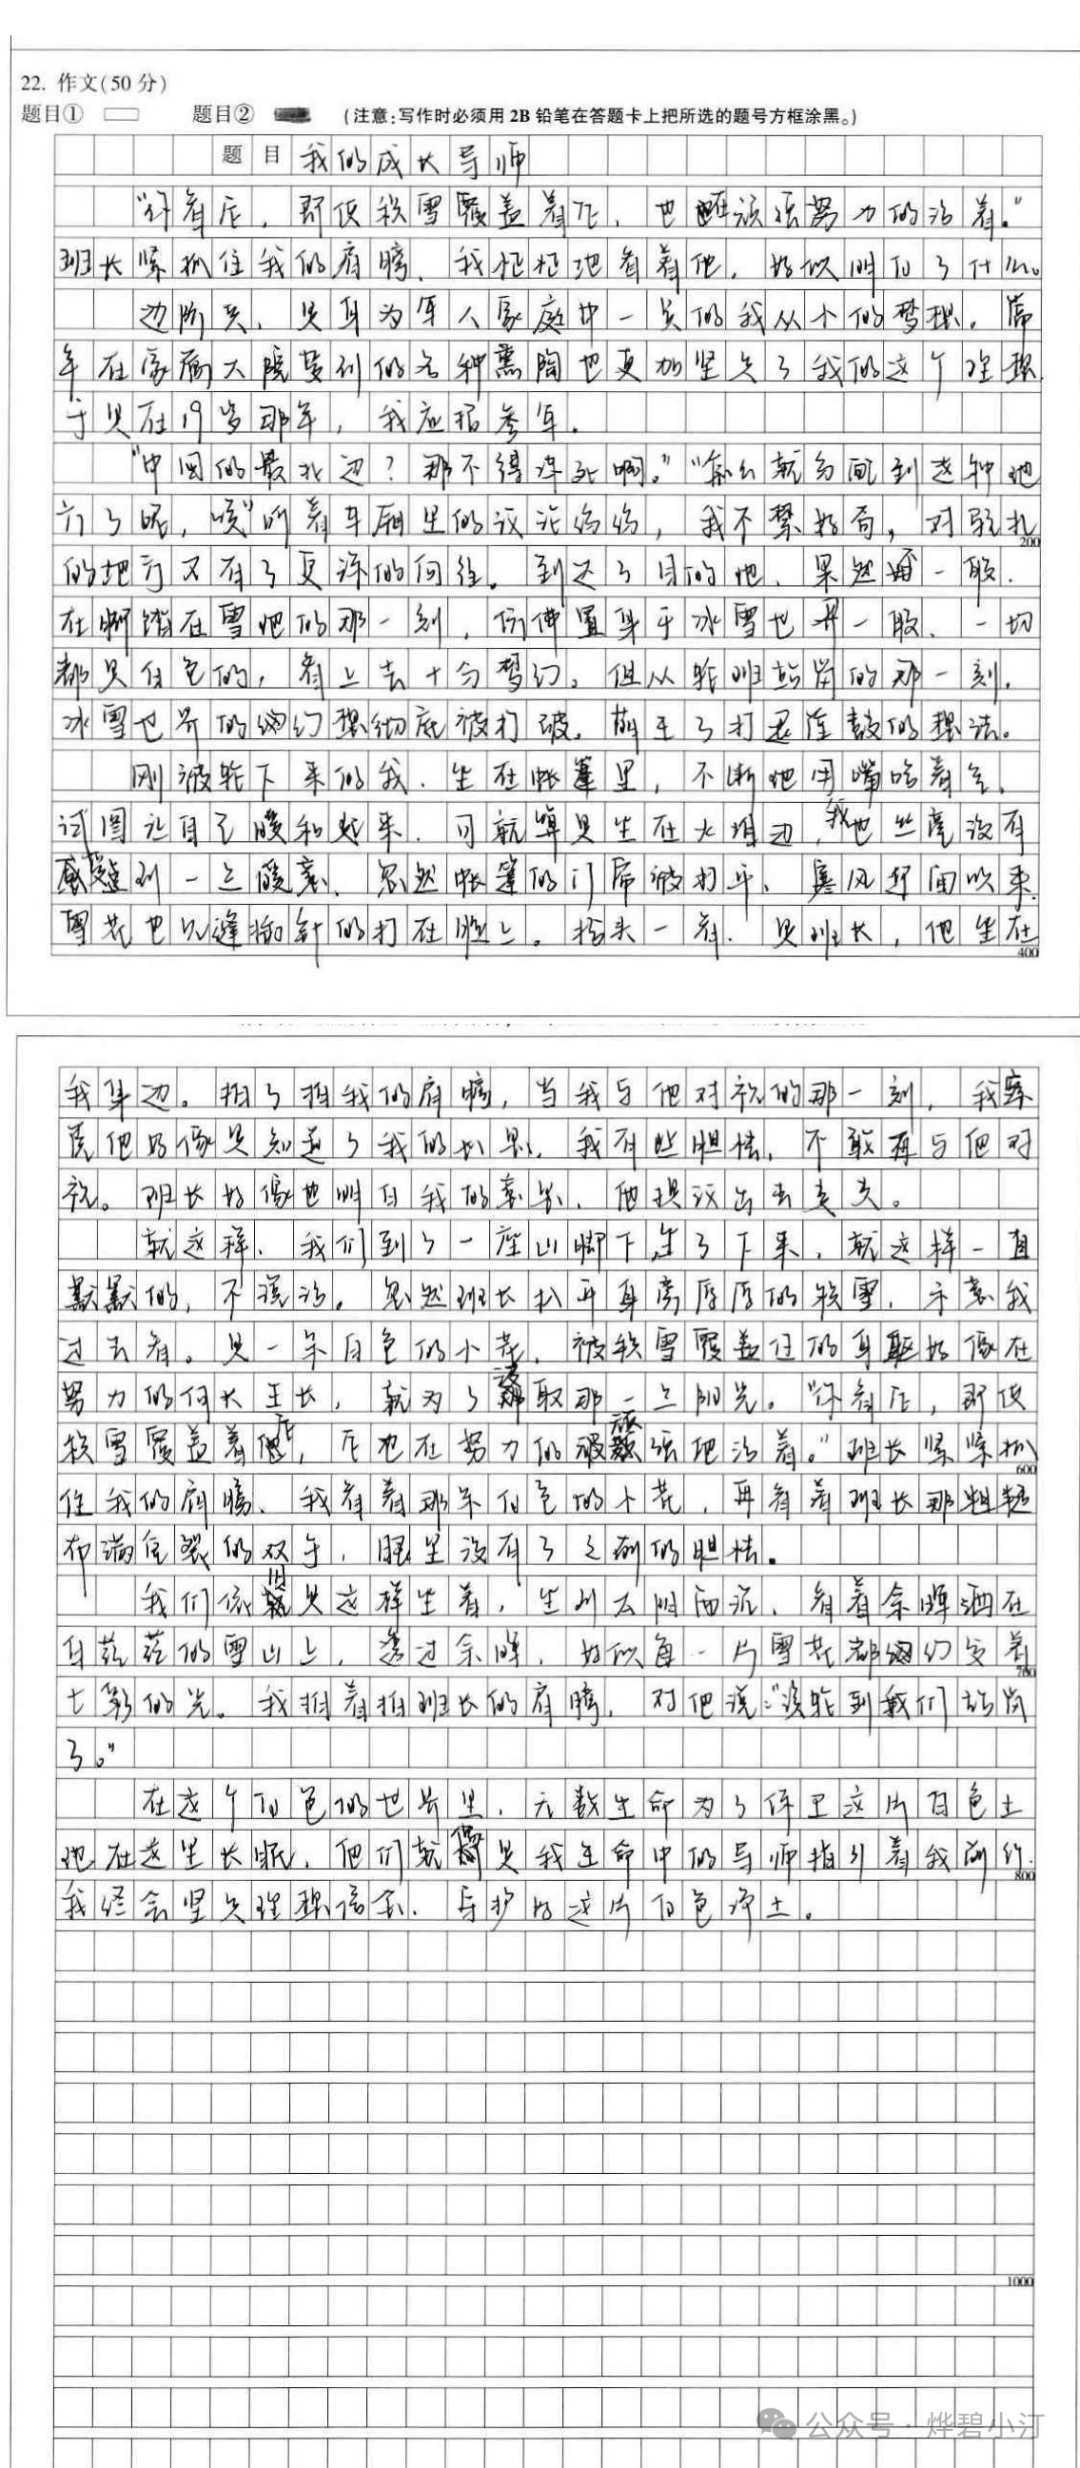 22. 作文(50分)
题目① 题目② (注意:写作时必须用2B铅笔在答题卡上把所选的题号方框涂黑。)
题目 我的成长导师
“你看花，即使积雪覆盖着花，也顽强努力的活着。”
班长紧抓住我的肩膀，我怔怔地看着他，好似明白了什么。
边防兵，是身为军人家庭中一员的我从小的梦想，常
年在家属大院受到的各种熏陶也更加坚定了我的这个理想
于是在19岁那年，我应招参军。
“中国的最北边？那不得冻死啊。”“怎么就分配到这种地
方了呢，唉”听着车厢里的议论纷纷，我不禁好奇，对驻扎
200
的地方又有了更深的向往。到达了目的地，果然一般，
在脚踏在雪地的那一刻，仿佛置身于冰雪世界一般，一切
都是白色的，看上去十分梦幻。但从轮班站岗的那一刻，
冰雪世界的幻想彻底被打破，萌生了打退堂鼓的想法。
刚被轮下来的我，坐在帐篷里，不断地用嘴哈着气，
试图让自己暖和起来，可就算是坐在火堆边，我也丝毫没有
感受到一点暖意，忽然帐篷的门帘被打开，寒风
雪花也见缝插针的打在脸上。抬头一看，是班长，他坐在
400
我身边。拍了拍我的肩膀，当我与他对视的那一刻，我察
觉他好像是知道了我的心思，我有些胆怯，不敢再与他对
视。班长好像也明白我的意思，他提议出去走走。
就这样，我们到了一座山脚下坐了下来，就这样一直
默默的，不说话。忽然班长扒开身旁厚厚的积雪，示意我
过去看。是一朵白色的小花，被积雪覆盖住的身躯好像在
努力的向上生长，就为了汲取那一点阳光。“你看花，即使
积雪覆盖着花，花也在努力的顽强地活着。”班长紧紧抓
600
住我的肩膀，我看着那朵白色的小花，再看着班长那粗糙
布满皲裂的双手，眼里没有了之前的胆怯。
我们依旧是这样坐着，坐到太阳西沉，看着余晖洒在
白茫茫的雪山上，透过余晖，好似每一片雪花都闪着
700
七彩的光。我拍着拍班长的肩膀，对他说：“该轮到我们站岗
了。”
在这个白色的世界里，无数生命为了保卫这片白色土
地在这里长眠，他们就像是我生命中的导师指引着我前行，
800
我终会坚定理想信念，守护好这片白色净土。
1000
公众号·烨碧小汀